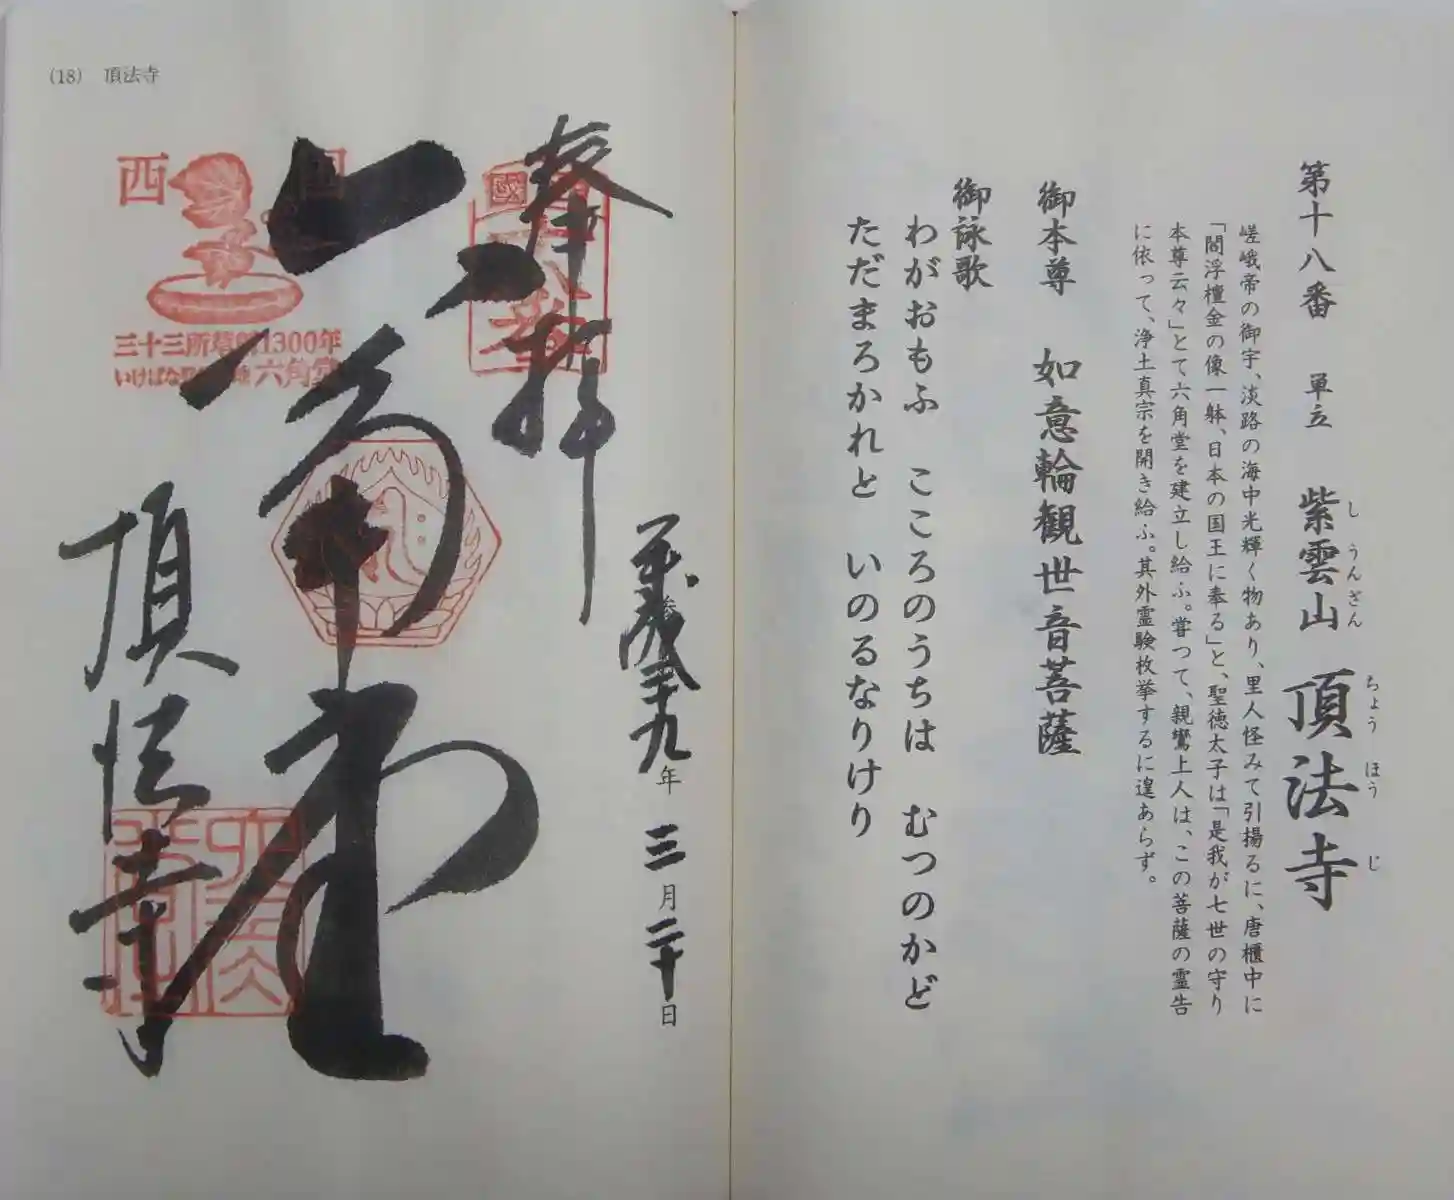 第十八番 単立 紫雲山 頂法寺
しうんざん ちょうほうじ
嵯峨帝の御宇、淡路の海中光輝く物あり、里人怪みて引揚るに、唐櫃中に
「閻浮檀金の像一躰、日本の国王に奉る」と、聖徳太子は「是我が七世の守り
本尊云々」とて六角堂を建立し給ふ。嘗つて、親鸞上人は、この菩薩の霊告
に依って、浄土真宗を開き給ふ。其外霊験枚挙するに遑あらず。
御本尊 如意輪観世音菩薩
御詠歌
わがおもふ こころのうちは むつのかど
ただまろかれと いのるなりけり
(18) 頂法寺
奉拝
平成二十九年 三月二十日
六角堂
頂法寺
西国
三十三所 1300年
いけばな 六角堂